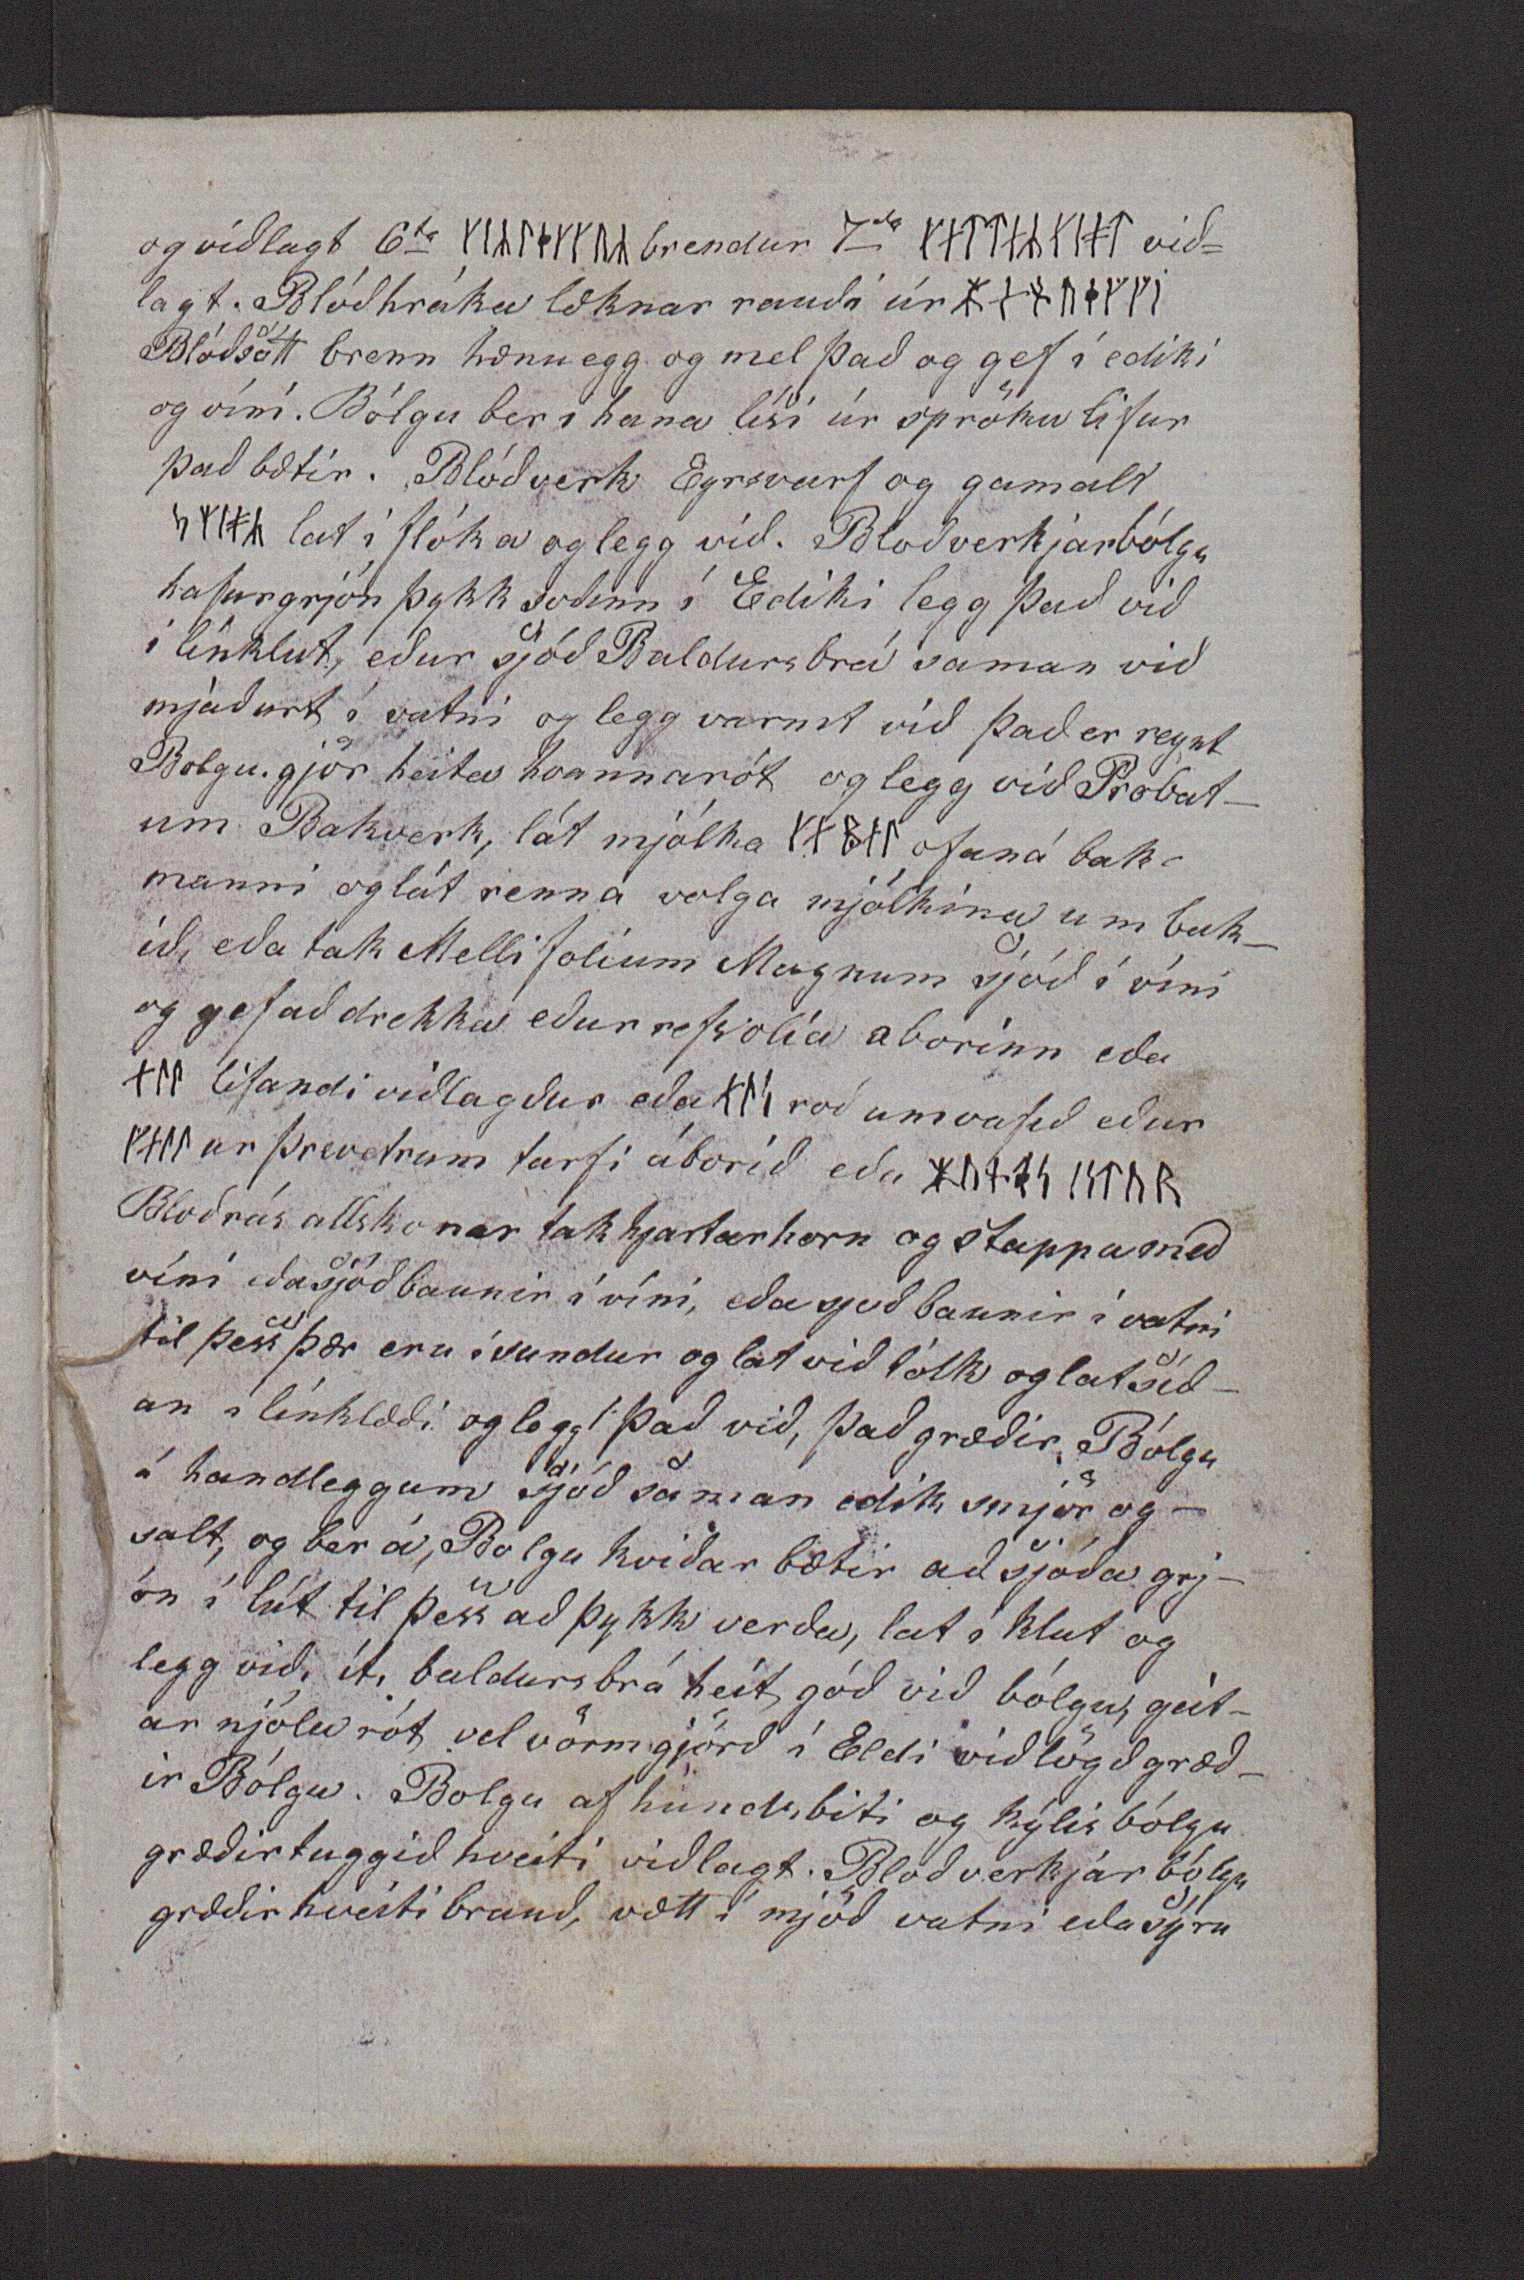 og viðlagt 6ta ᚴᛁᛦᛚᚮᚴᚴᚢᛦ brendur 7da ᚴᛆᛏᛏᛆᛦᚴᛁᚮᛏ við=
lagt. Blóðhráka læknar rauði úr
Blóðsótt brenn hænuegg og mel það og gef í ediki
og víni. Bólgu ber í hana lísi úr spröku lifur
það bætir. Blóðverk Eyrsvarf og gamalt
lat í flóka og legg við. Bloðverkjarbólgu
hafurgrjón þykk soðinn í Ediki legg það við
í línklut, eður sjóð Baldursbrá saman við
mjaðurt í vatni og legg varmt við það er reynt
Bolgu. gjör heita hvannarót og legg við Probat-
um Bakverk, lát mjólka ᚴᛆᛒᛆᛚ ofaná bak
manni og lát renna volga mjólkina um bak-
ið, eða tak Mellifolium Magnum sjóð í víni
og gef að drekka eður refsolía aborinn eða
ᛆᛚᛚ lifandi viðlagður eða ᛆᛚᛋ roð umvafið eður
ᚴᛆᛚᛚ ur þrevetrum tarfi áborið eða
Bloðrás allskonar tak hjartarhorn og stappa með
víni eða sjóð baunir í víni, eða sjoð baunir í vatni
til þess þær eru ísundur og lat við tólk og lat síð-
an í línklæði og legg það við, það græðir, Bólgu
á handleggum sjóð saman edik smjör og -
salt, og ber á, Bolgu kviðar bætir að sjóða grj-
ón í lút til þess að þykk verða, lat í klut og
legg við, it, baldursbrá heit, góð við bólgu, geit-
ar njóla rót vel vörm gjörð í Eldi viðlögð græð-
ir Bólgu. Bolgu af hundsbiti og kýlis bólgu
græðir tuggið hveiti viðlagt. Bloðverkjar bólgu
græðir hveiti brauð, vætt í mjöð vatni eða sýru